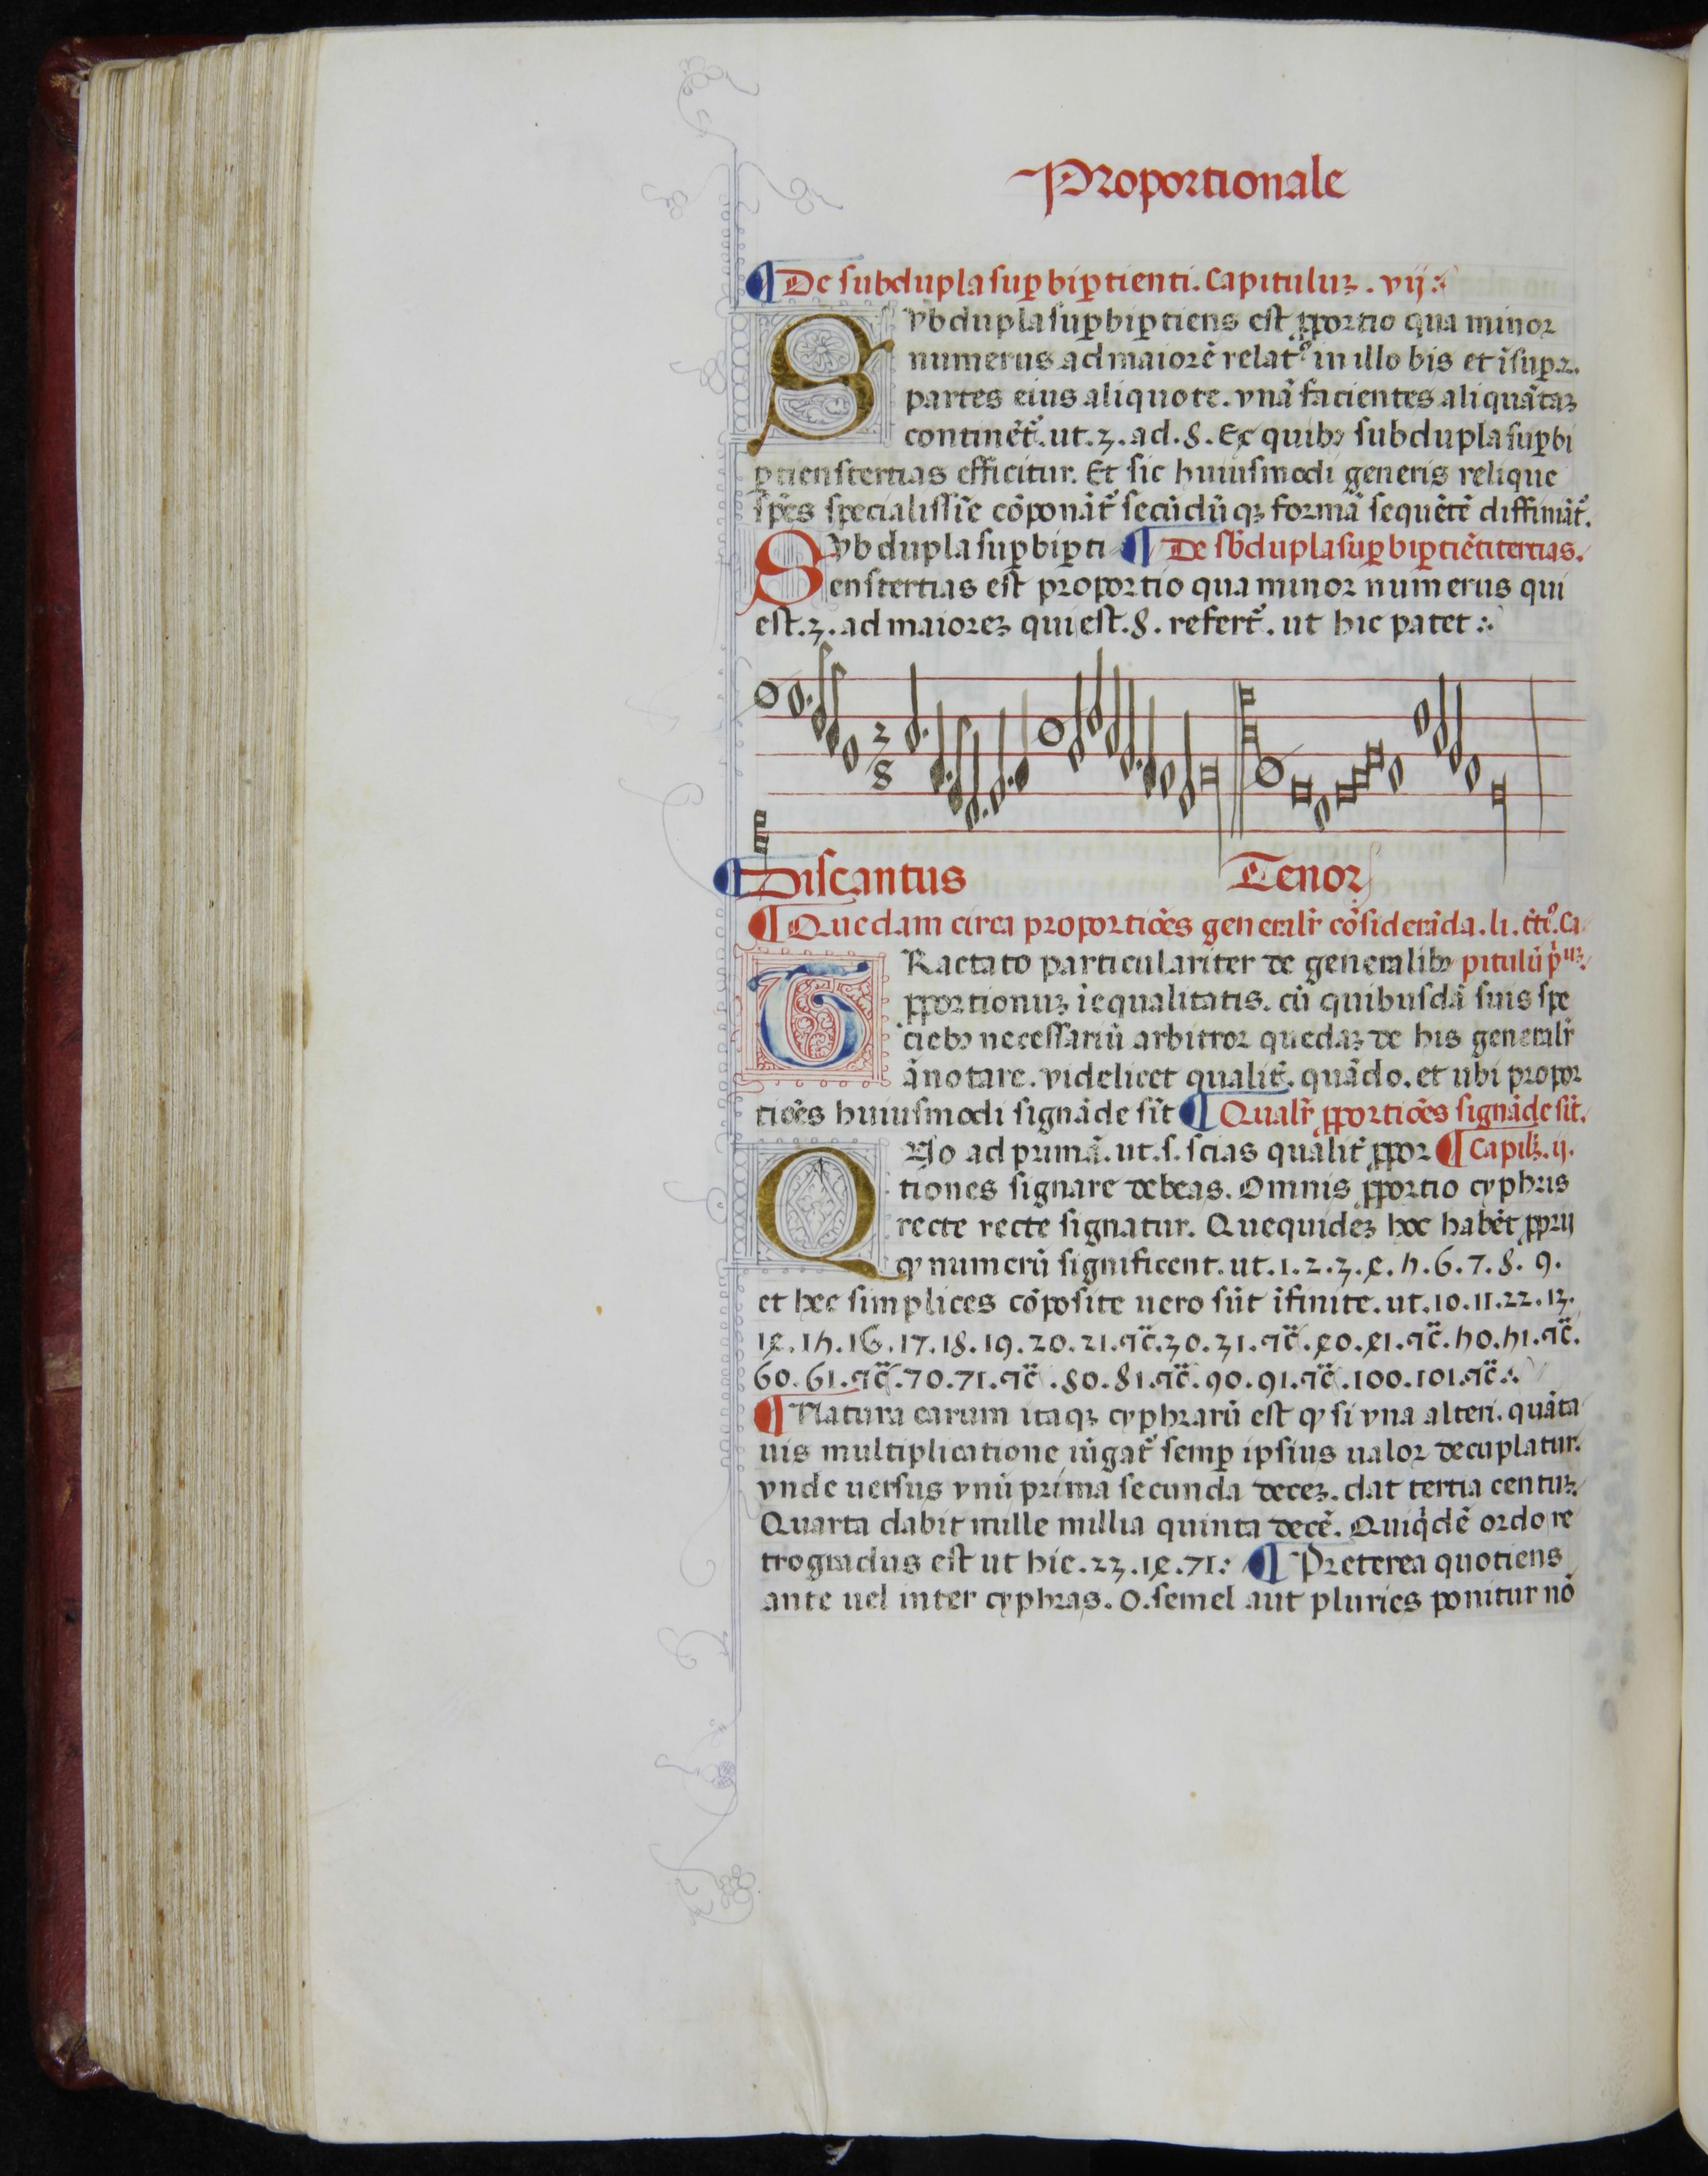 Proportionale
¶ De subdupla sup̱ bip̱tienti. Capituluʒ. vij:·
Svbdupla sup̱bip̱tiens est ꝓportio qua minor
numerus ad maiorē relatꝰ in illo bis et ĩsup̱ 2.
partes eius aliquote. vnã facientes aliquãtaʒ
continẽt᷑. ut. 3. ad. 8. Ex quibꝫ subdupla sup̱bi
p̱tiens tertias efficitur. Et sic huiusmodi generis relique
sp̃es specialissi͂e cõponãt᷑ secũdũ qʒ formã sequẽtẽ diffiniãt᷑.
Svb dupla sup̱bip̱ti ¶ De sb̃dupla sup̱bip̱tiẽti tertias.
ens tertias est proportio qua minor numerus qui
est. 3. ad maioreʒ qui est. 8. refert᷑. ut hic patet :·
2
8
¶ Discantus Tenor
¶ Quedam circa proportiões generalr̃ cõsiderãda. li. t̃tiꝰ. Ca
TRactato particulariter de generalibꝫ pitulũ p̃muʒ.
ꝓportionuʒ ĩequalitatis. cũ quibusdã suis spe
ciebꝫ necessariũ arbitror quedaʒ de his generalr̃
ãnotare. videlicet qualit᷑. quãdo. et ubi propor
tiões huiusmodi signãde sĩt ¶ Qualr̃ ꝓportiões signãde sĩt.
Qvo ad primã. ut. s. scias qualit᷑ ꝓpor ¶ Capilʒ. ij.
tiones signare debeas. Omnis ꝓportio cyphris
recte recte signatur. Quequideʒ hoc habẽt ꝓprij
ꝙ numerũ significent. ut. 1. 2. 3. 4. 5. 6. 7. 8. 9.
et hec simplices cõposite uero sũt ĩfinite. ut. 10. 11. 22. 13.
14. 15. 16. 17. 18. 19. 20. 21. ⁊c̃. 30. 31. ⁊c̃. 40. 41. ⁊c̃. 50. 51. ⁊c̃.
60. 61. ⁊c̃. 70. 71. ⁊c̃. 80. 81. ⁊c̃. 90. 91. ⁊c̃. 100. 101. ⁊c̃:·
¶ Natura earum itaqʒ cyphrarũ est ꝙ si vna alteri. quãta
uis multiplicatione iũgat᷑ semp̱ ipsius ualor decuplatur.
vnde uersus vnũ prima secunda deceʒ. dat tertia centuʒ.
Quarta dabit mille millia quinta decẽ. Quiq̃dẽ ordo re
trogradus est ut hic. 23. 14. 71:· ¶ Preterea quotiens
ante uel inter cyphras. 0. semel aut pluries ponitur nõ